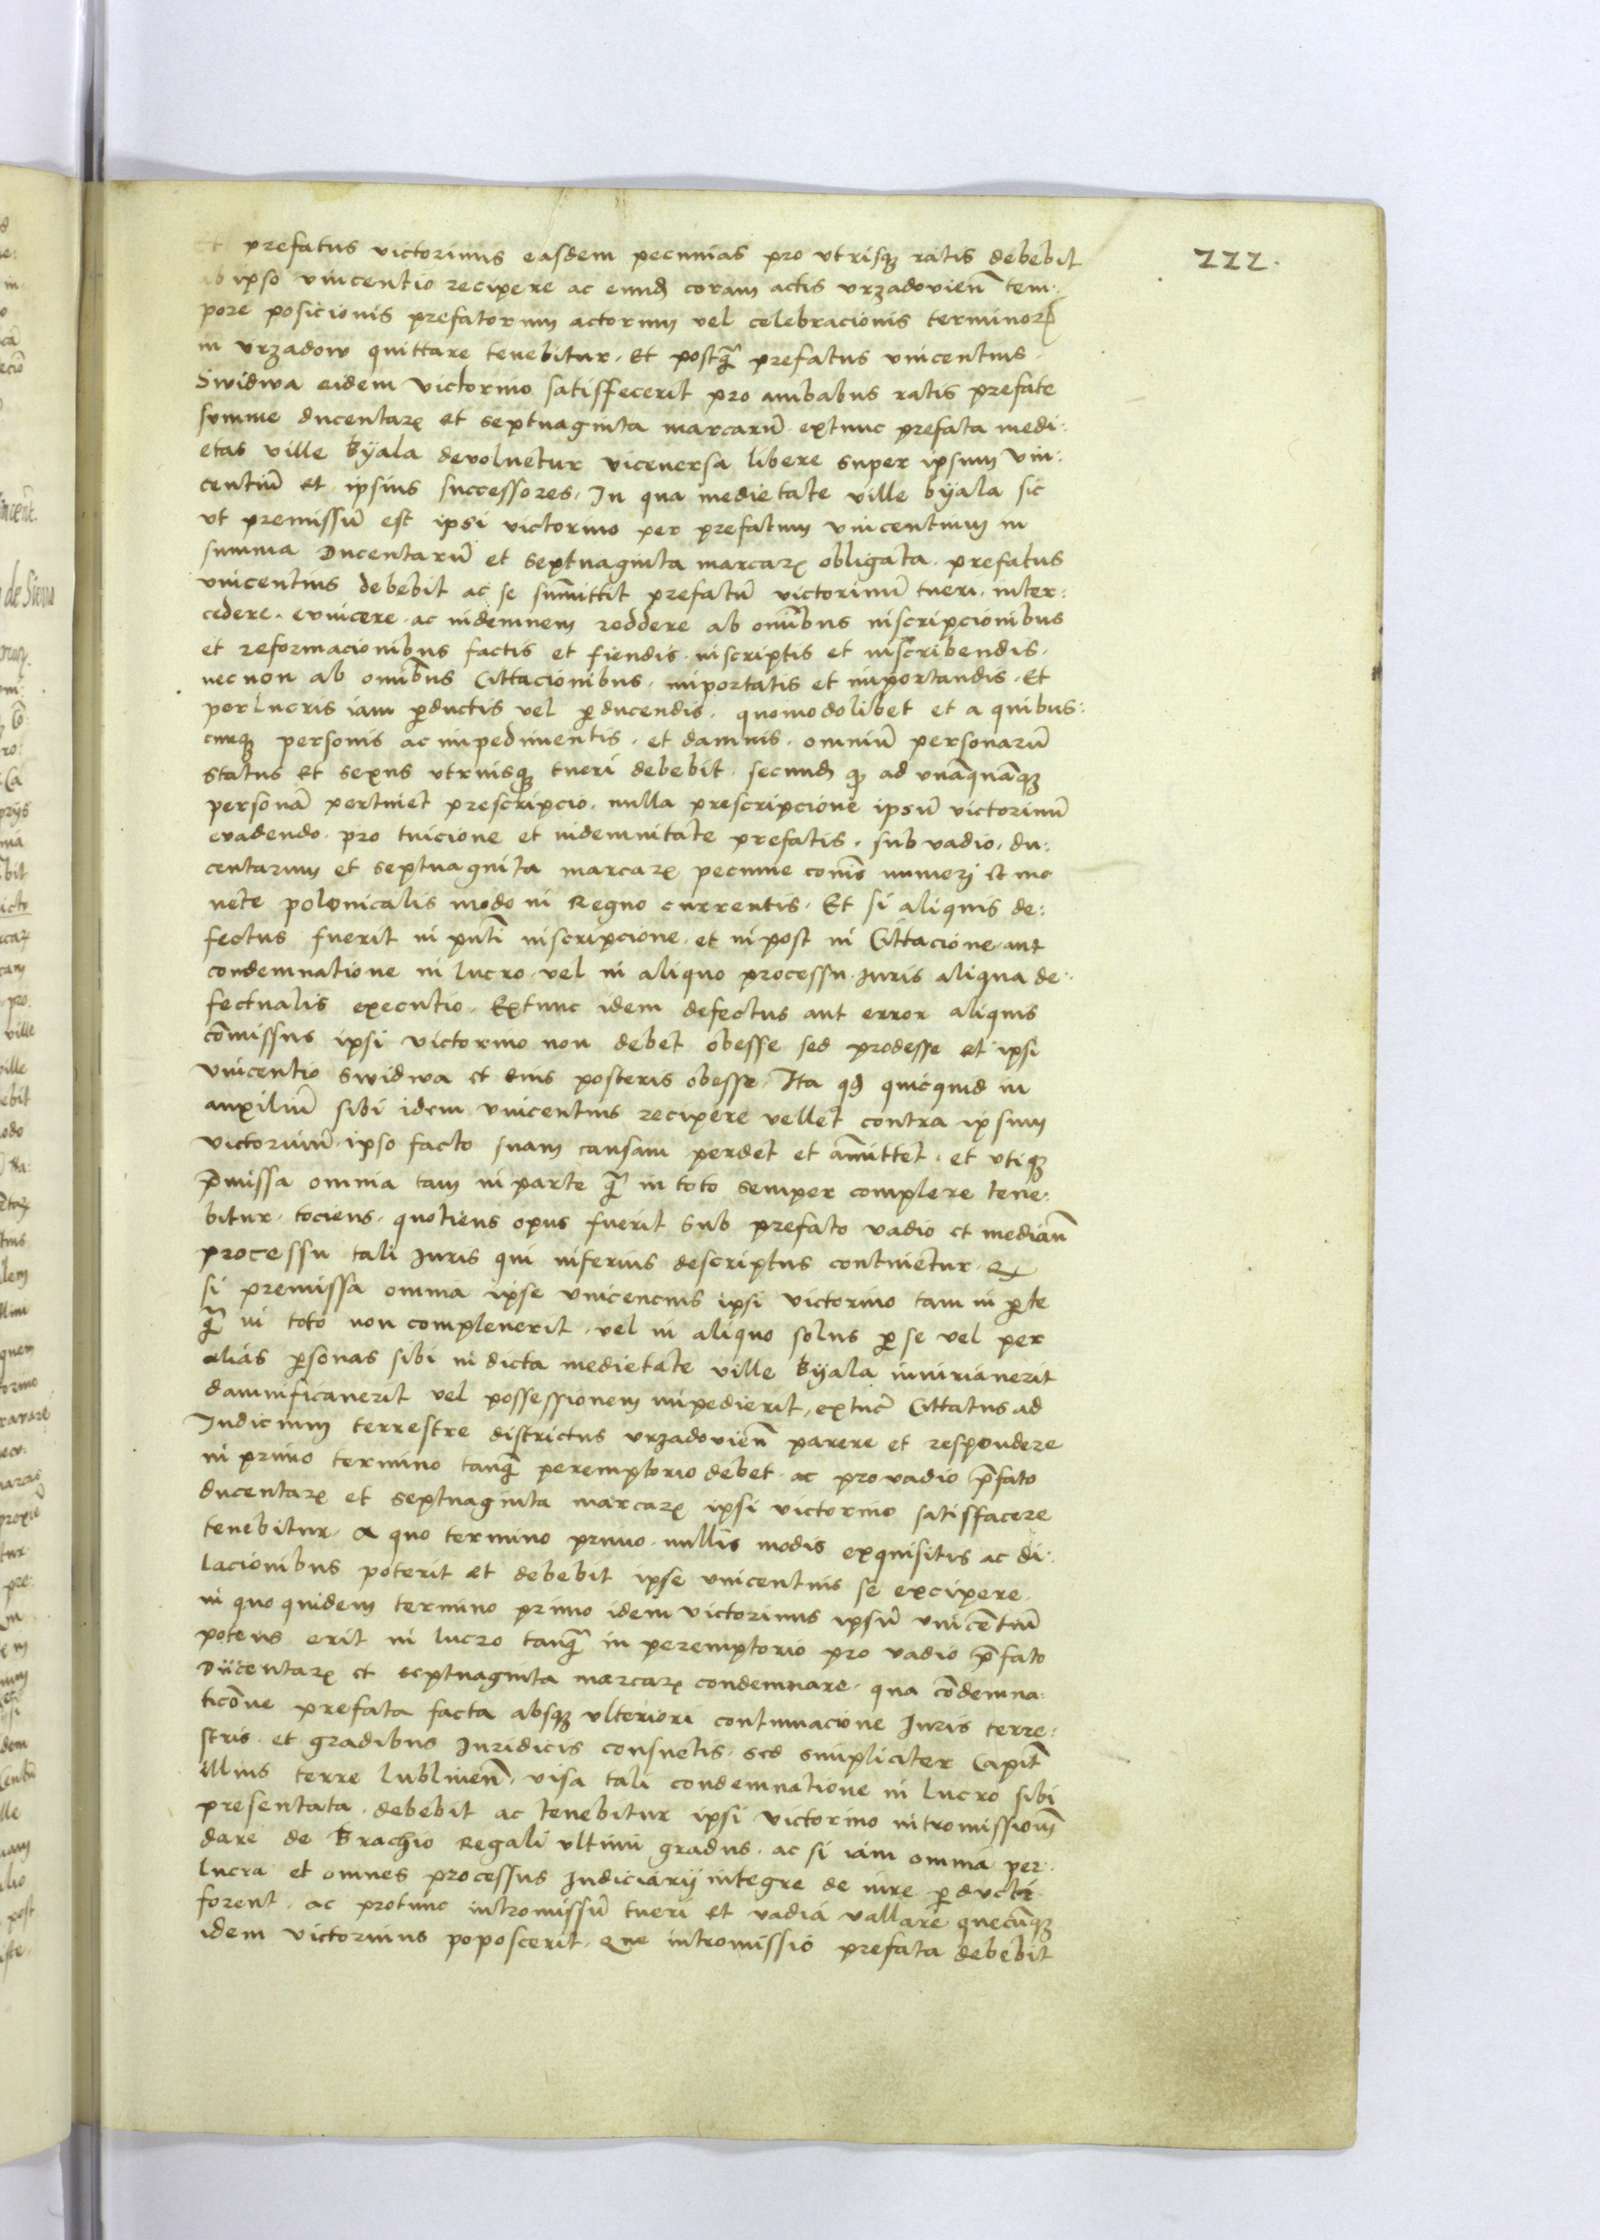 222.
Et prefatus victorinus easdem pecunias pro vtrisq ratis debebit
ab ipso vincentio recipere ac eund coram actis vrzadovien̄ tem:
pore posicionis prefatorum actorum vel celebracionis terminor
in vrzadow quittare tenebitur. Et postq̄ prefatus vincentius.
Swidwa eidem victorino satisffecerit pro ambabus ratis prefate
summe ducentar et septuaginta marcarū extunc prefata medi:
etas ville Byala devoluetur viceuersa libere super ipsum vin:
centiū et ipsius successores. In qua medietate ville byala sic
vt premissū est ipsi victorino per prefatum vincentium in
summa Ducentarū et septuaginta marcar obligata. prefatus
vincentius debebit ac se sum̄ittit prefatū victorinū tueri. inter:
cedere. evincere. ac indemnem reddere ab om̄ibus inscripcionibus
et reformacionibus factis et fiendis. inscriptis et inscribendis.
nec non ab om̄ibus Cittacionibus. importatis et importandis. Et
perlucris iam pductis vel pducendis. quomodolibet et a quibus:
cumq personis ac impedimentis. et damnis. omniū personarū
status et sexus vtriusq tueri debebit. secund q ad vnāquāq
personā pertinet prescripcio. nulla prescripcione ipsū victorinū
evadendo. pro tuicione et indemnitate prefatis. sub vadio. du:
centarum et septuaginta marcar pecunie com̄is numeri et mo
nete polonicalis modo in Regno currentis. Et si aliquis de:
fectus fuerit in pn̄ti inscripcione. et in post in Cittacione. aut
condemnatione in lucro. vel in aliquo processu. Juris aliqua de:
fectualis executio. Extunc idem defectus aut error aliquis
com̄issus ipsi victorino non debet obesse sed prodesse et ipsi
vincentio swidwa et eius posteris obesse. Ita qd quicquid in
auxiliū sibi idem vincentius recipere vellet contra ipsum
victorinū. ipso facto suam causam perdet et am̄ittet. et vtiq
p̄missa omnia tam in parte q̄ in toto semper complere tene:
bitur. tociens. quotiens opus fuerit sub prefato vadio et median̄
processu tali Juris qui inferius descriptus continetur. Q
si premissa omnia ipse vincencius ipsi victorino tam in pte
q̄ in toto non compleuerit. vel in aliquo solus p se vel per
alias psonas sibi in dicta medietate ville Byala iniuriauerit
damnificauerit vel possessionem impedierit, extunc Cittatus ad
Judicium terrestre districtus vrzadovien̄ parere et respondere
in primo termino tanq̄ peremptorio debet. ac pro vadio p̄fato
ducentar et septuaginta marcar ipsi victorino satisffacere
tenebitur. A quo termino primo. nullis modis exquisitis ac di:
lacionibus poterit et debebit ipse vincentius se excipere.
in quo quidem termino primo idem victorinus ipsū vincētiū
potens erit in lucro tanq̄ in peremptorio pro vadio p̄fato
Ducentar et septuaginta marcar condemnare. qua condemna:
ticone prefata facta absq vlteriori continuacione Juris terre:
stris. et gradibus Juridicis consuetis. sed simpliciter Capit̄
illius terre lublinen̄. visa tali condemnatione in lucro sibi
presentata. debebit ac tenebitur ipsi victorino intromissionē
dare de Brachio Regali vltimi gradus. ac si iam omnia per.
lucra et omnes processus Judiciarij integre de iure pducti
forent. ac protunc intromissū tueri et vadia vallare quecūq
idem victorinus poposcerit. Que intromissio prefata debebit